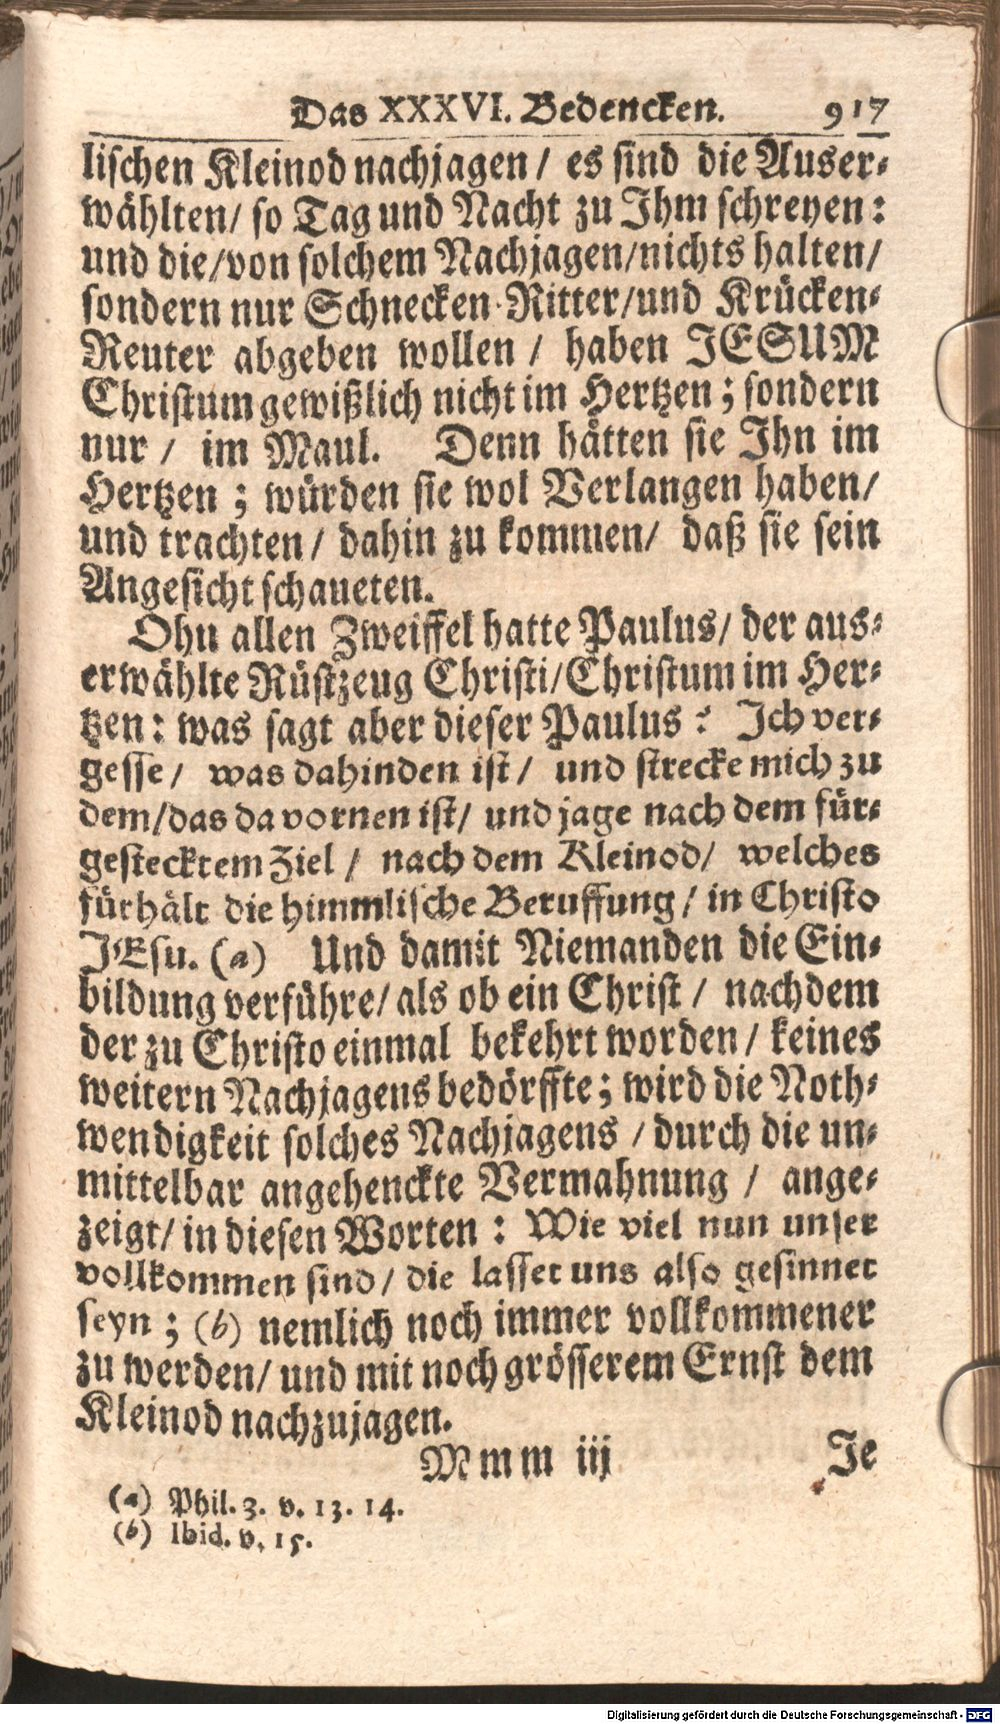 Das XXXVI. Bedencken. 917
lischen Kleinod nachjagen / es sind die Auser-
wählten / so Tag und Nacht zu Ihm schreyen:
und die / von solchem Nachjagen / nichts halten /
sondern nur Schnecken-Ritter / und Krücken-
Reuter abgeben wollen / haben JESUM
Christum gewißlich nicht im Hertzen; sondern
nur / im Maul. Denn hätten sie Ihn im
Hertzen; würden sie wol Verlangen haben /
und trachten / dahin zu kommen / daß sie sein
Angesicht schaueten.
Ohn allen Zweiffel hatte Paulus / der aus-
erwählte Rüstzeug Christi / Christum im Her-
tzen: was sagt aber dieser Paulus? Ich ver-
gesse / was dahinden ist / und strecke mich zu
dem / das da vornen ist / und jage nach dem für-
gestecktem Ziel / nach dem Kleinod / welches
fürhält die himmlische Beruffung / in Christo
JEsu. (a) Und damit Niemanden die Ein-
bildung verführe / als ob ein Christ / nachdem
der zu Christo einmal bekehrt worden / keines
weitern Nachjagens bedörffte; wird die Noth-
wendigkeit solches Nachjagens / durch die un-
mittelbar angehenckte Vermahnung / ange-
zeigt / in diesen Worten: Wie viel nun unser
vollkommen sind / die lasset uns also gesinnet
seyn; (b) nemlich noch immer vollkommener
zu werden / und mit noch grösserem Ernst dem
Kleinod nachzujagen.
Mmm iij Je
(a) Phil. 3. v. 13. 14.
(b) Ibid. v. 15.
Digitalisierung gefördert durch die Deutsche Forschungsgemeinschaft - DFG